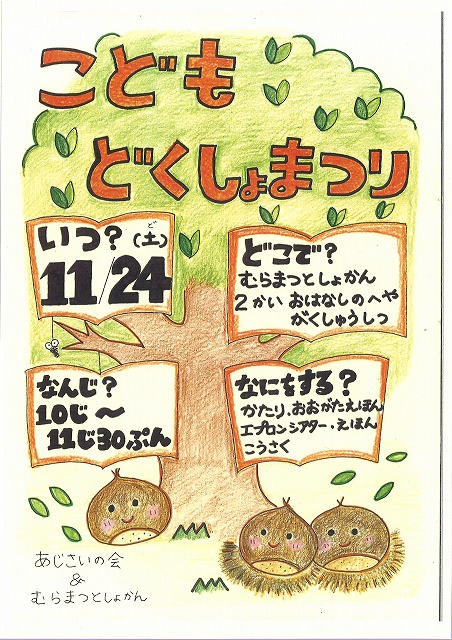 こども
どくしょまつり
いつ？(土)
ど
11/24
どこで？
むらまつとしょかん
2かい おはなしのへや
がくしゅうしつ
なんじ？
10じ〜
11じ30ぷん
なにをする？
かたり．おおがたえほん
エプロンシアター・えほん
こうさく
あじさいの会
&
むらまつとしょかん